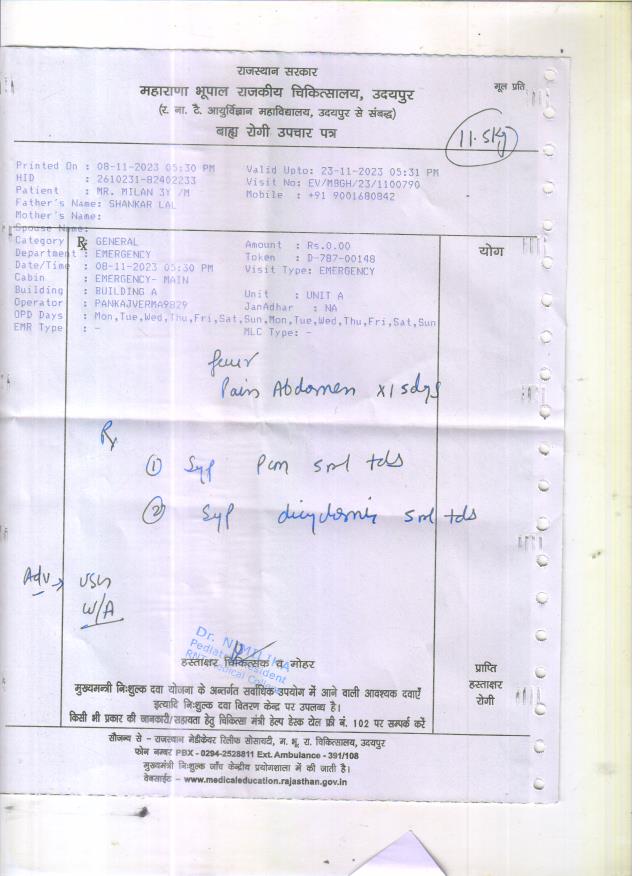 राजस्थान सरकार
महाराणा भूपाल राजकीय चिकित्सालय, उदयपुर
मूल प्रति
(र. ना. टै. आयुर्विज्ञान महाविद्यालय, उदयपुर से संबद्ध)
बाह्य रोगी उपचार पत्र
11.5kg
Printed On : 08-11-2023 05:30 PM Valid Upto: 23-11-2023 05:31 PM
HID : 2610231-82402233 Visit No: EV/MBGH/23/1100790
Patient : MR. MILAN 3Y /M Mobile : +91 9001680842
Father's Name: SHANKAR LAL
Mother's Name:
Spouse Name:
Category Rx GENERAL Amount : Rs.0.00 योग
Department : EMERGENCY Token : D-787-00148
Date/Time : 08-11-2023 05:30 PM Visit Type: EMERGENCY
Cabin : EMERGENCY- MAIN
Building : BUILDING A Unit : UNIT A
Operator : PANKAJVERMA9829 JanAdhar : NA
OPD Days : Mon,Tue,Wed,Thu,Fri,Sat,Sun,Mon,Tue,Wed,Thu,Fri,Sat,Sun
EMR Type : - MLC Type: -
fever
Pain Abdomen x15dys
Rx
① Syp pcm 5ml tds
② Syp dicyclomin 5ml tds
Adv → USG
W/A
Dr.
Pediatric Resident
RNT Medical College
हस्ताक्षर चिकित्सक व मोहर
प्राप्ति
हस्ताक्षर
रोगी
मुख्यमन्त्री निःशुल्क दवा योजना के अन्तर्गत सर्वाधिक उपयोग में आने वाली आवश्यक दवाएँ
इत्यादि निःशुल्क दवा वितरण केन्द्र पर उपलब्ध है।
किसी भी प्रकार की जानकारी/सहायता हेतु चिकित्सा मंत्री हेल्प डेस्क टोल फ्री नं. 102 पर सम्पर्क करें
सौजन्य से - राजस्थान मेडीकेयर रिलीफ सोसायटी, म. भू. रा. चिकित्सालय, उदयपुर
फोन नम्बर PBX - 0294-2528811 Ext. Ambulance - 391/108
मुख्यमंत्री निःशुल्क जाँच केन्द्रीय प्रयोगशाला में की जाती है।
वेबसाईट - www.medicaleducation.rajasthan.gov.in